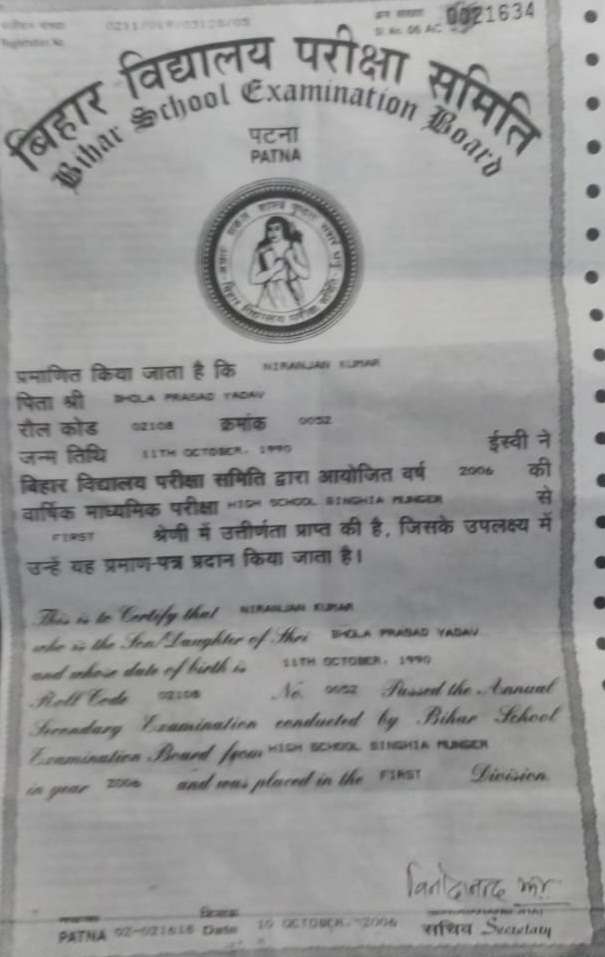 Registration No.
0021634
Sl. No. 06 AC
बिहार विद्यालय परीक्षा समिति
Bihar School Examination Board
पटना
PATNA
प्रमाणित किया जाता है कि NIRANJAN KUMAR
पिता श्री BHOLA PRASAD YADAV
रौल कोड 02108 क्रमांक 0052
जन्म तिथि 11TH OCTOBER, 1990 ईस्वी ने
बिहार विद्यालय परीक्षा समिति द्वारा आयोजित वर्ष 2006 की
वार्षिक माध्यमिक परीक्षा HIGH SCHOOL SINGHIA MUNGER से
FIRST श्रेणी में उत्तीर्णता प्राप्त की है, जिसके उपलक्ष्य में
उन्हें यह प्रमाण-पत्र प्रदान किया जाता है।
This is to Certify that NIRANJAN KUMAR
who is the Son/Daughter of Shri BHOLA PRASAD YADAV
and whose date of birth is 11TH OCTOBER, 1990
Roll Code 02108 No. 0052 Passed the Annual
Secondary Examination conducted by Bihar School
Examination Board from HIGH SCHOOL SINGHIA MUNGER
in year 2006 and was placed in the FIRST Division.
PATNA 02-021616 Date 10 OCTOBER, 2006 सचिव Secretary